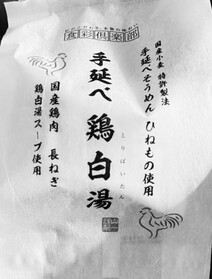 食彩倶楽部
国産小麦 特許製法
手延べそうめん ひねもの使用
手延べ 鶏白湯
とりぱいたん
国産鶏肉 長ねぎ
鶏白湯スープ使用